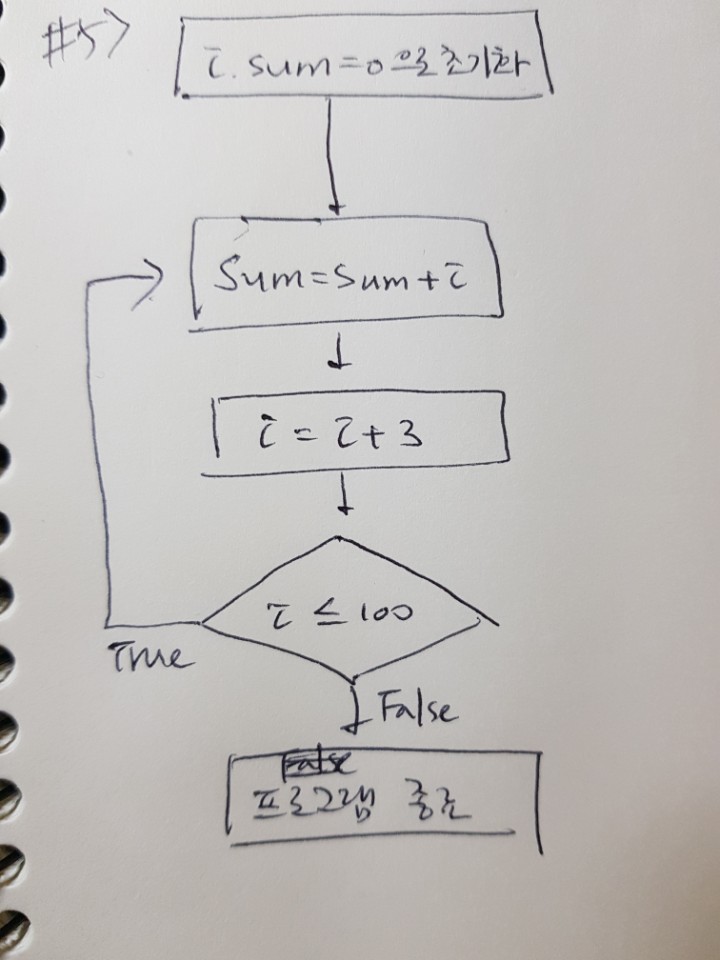 #5>
i. sum = 0 으로 초기화
Sum = Sum + i
i = i + 3
i ≤ 100
True
False
False
프로그램 종료